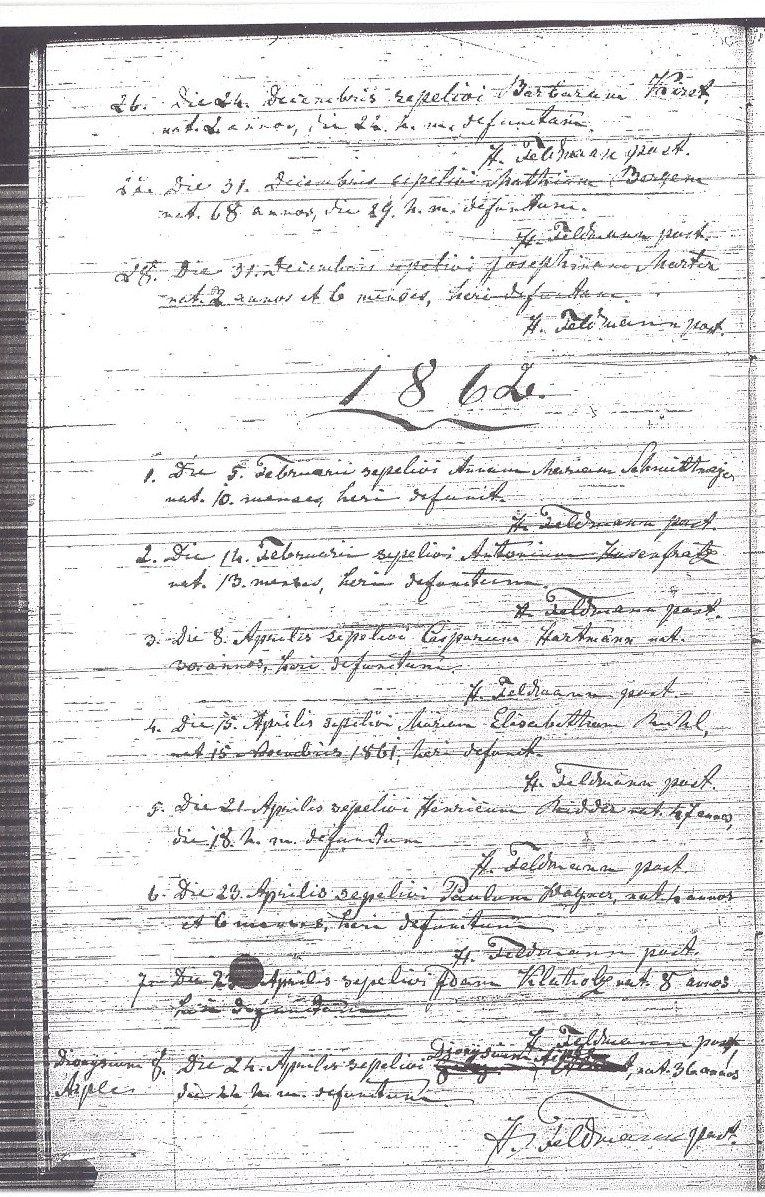 26. Die 24. Decembris sepelivi Barbaram
nat. 2 annos, die 22. h. m. defunctam.
H. Feldmann past.
Die 31. Decembris sepelivi Mathiam Borgem
nat. 68 annos, die 29. h. m. defunctum.
H. Feldmann past.
28. Die 31. Decembris sepelivi Josephinam Marter
nat. 2 annos et 6 menses, heri defunctam.
H. Feldmann past.
1862.
1. Die 5. Februarii sepelivi Annam Mariam
nat. 10. menses, heri defunct.
H. Feldmann past.
2. Die 14. Februarii sepelivi Antonium Hasenfratz
nat. 13. menses, heri defunctum.
H. Feldmann past.
3. Die 8. Aprilis sepelivi Casparum Hartmann nat.
30. annos, heri defunctum.
H. Feldmann past.
4. Die 15. Aprilis sepelivi Mariam Elisabetham
nat 15 1861, heri defunct.
H. Feldmann past.
5. Die 21. Aprilis sepelivi Henricum Ridder nat. 47 annos,
die 18. h. m. defunctum
H. Feldmann past.
6. Die 23. Aprilis sepelivi Paulum Wagner, nat. 4 annos
et 6 menses, heri defunctum
H. Feldmann past.
7. Die Aprilis sepelivi Adam nat. 8 annos
heri defunctum
H. Feldmann past.
Dionysium 8. Die 24. Aprilis sepelivi Dionysium, nat. 36 annos
die 22. h. m. defunctum
H. Feldmann past.